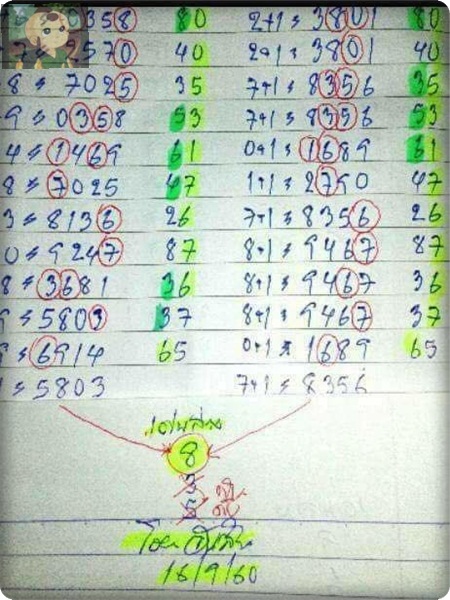 0358 80 2+1 = 3801 80
2570 40 2+1 = 3801 40
8 = 7025 35 7+1 = 8356 35
9 = 0358 53 7+1 = 8356 53
4 = 1469 61 0+1 = 1689 61
8 = 7025 47 1+1 = 2790 47
3 = 8136 26 7+1 = 8356 26
0 = 9247 87 8+1 = 9467 87
8 = 3681 36 8+1 = 9467 36
9 = 5803 37 8+1 = 9467 37
9 = 6914 65 0+1 = 1689 65
= 5803 7+1 = 8356
8
3
5
16/9/60